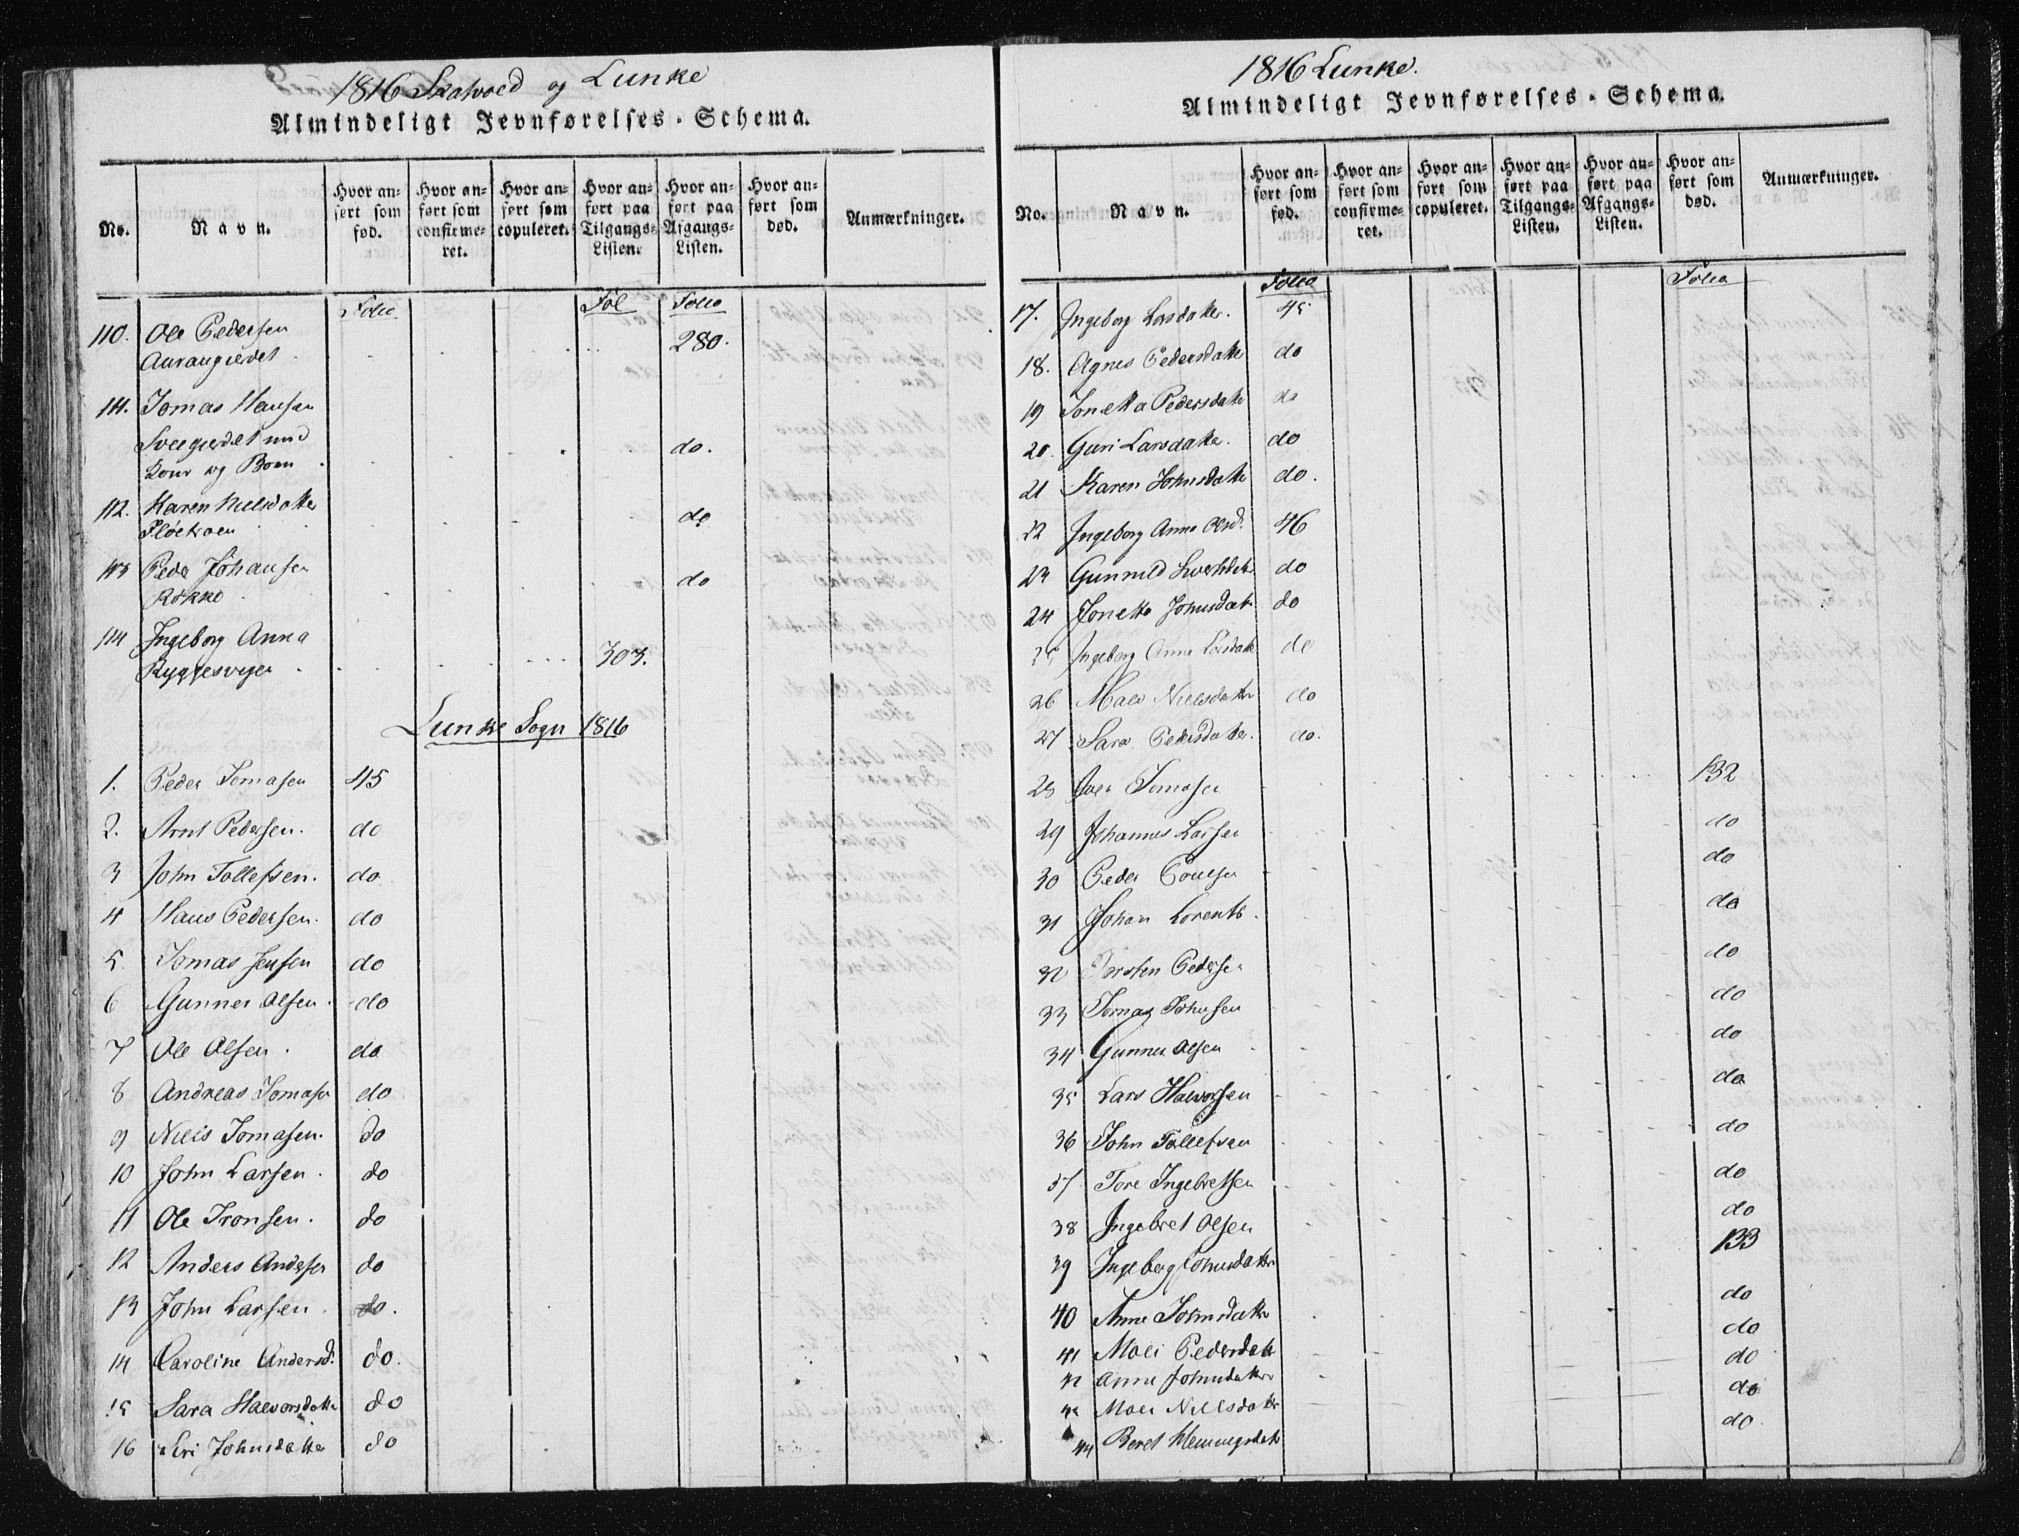 1816 Skatvold og Lunke
Almindeligt Jevnførelses-Schema.
No.
Navn.
Hvor anført som fød.
Hvor anført som confirmeret.
Hvor anført som copuleret.
Hvor anført paa Tilgangs-Listen.
Hvor anført paa Afgangs-Listen.
Hvor anført som død.
Anmærkninger.
Folio Fol Folio
110. Ole Pedersen 280.
111. Tomas Hansen
Kone og Børn do.
112. Karen Nielsdatter do
113 Peder Johansen do
Røkke
114 Ingeborg Anna 303.
Lunke Sogn 1816
1. Peder Tomasen 45
2. Arnt Pedersen. do
3 John Tollefsen. do
4 Hans Pedersen. do
5 Tomas Jensen do
6 Gunner Olsen. do
7 Ole Olsen. do
8 Andreas Tomasen do
9 Niels Tomasen. do
10 John Larsen. do
11 Ole Tronsen. do
12 Anders Andersen do
13 John Larsen. do.
14 Caroline Andersd. do.
15 Sara Halvorsdatter do
16 Siri Johnsdatter do
1816 Lunke.
Almindeligt Jevnførelses-Schema.
No.
Navn.
Hvor anført som fød.
Hvor anført som confirmeret.
Hvor anført som copuleret.
Hvor anført paa Tilgangs-Listen.
Hvor anført paa Afgangs-Listen.
Hvor anført som død.
Anmærkninger.
Folio Folio
17. Ingeborg Larsdatter. 45
18. Agnes Pedersdatter do
19 Jonetta Pedersdatter do
20. Guri Larsdatter. do
21 Karen Johnsdatter do.
22 Ingeborg Anna Olsd. 46
23 Gunnild do
24 Jonetta Johnsdatr do
25 Ingeborg Anna Larsdatter do
26 Mali Nielsdatter do
27 Sara Pedersdatter. do.
28 Iver Tomasen 132
29 Johannes Larsen do
30 Peder Poulsen do
31 Johan Lorents. do
32 Torsten Pedersen do
33 Tomas Johnsen do
34 Gunner Olsen do
35 Lars Halvorsen do
36 John Tollefsen do
37 Tore Ingebretsen do
38 Ingebret Olsen do
39 Ingeborg Johnsdatter 133
40 Anne Johnsdatter do
41 Mali Pedersdatr do
42 Anne Johnsdatter do
43 Mali Nielsdatr do
44 Beret Hemmingsdatr do